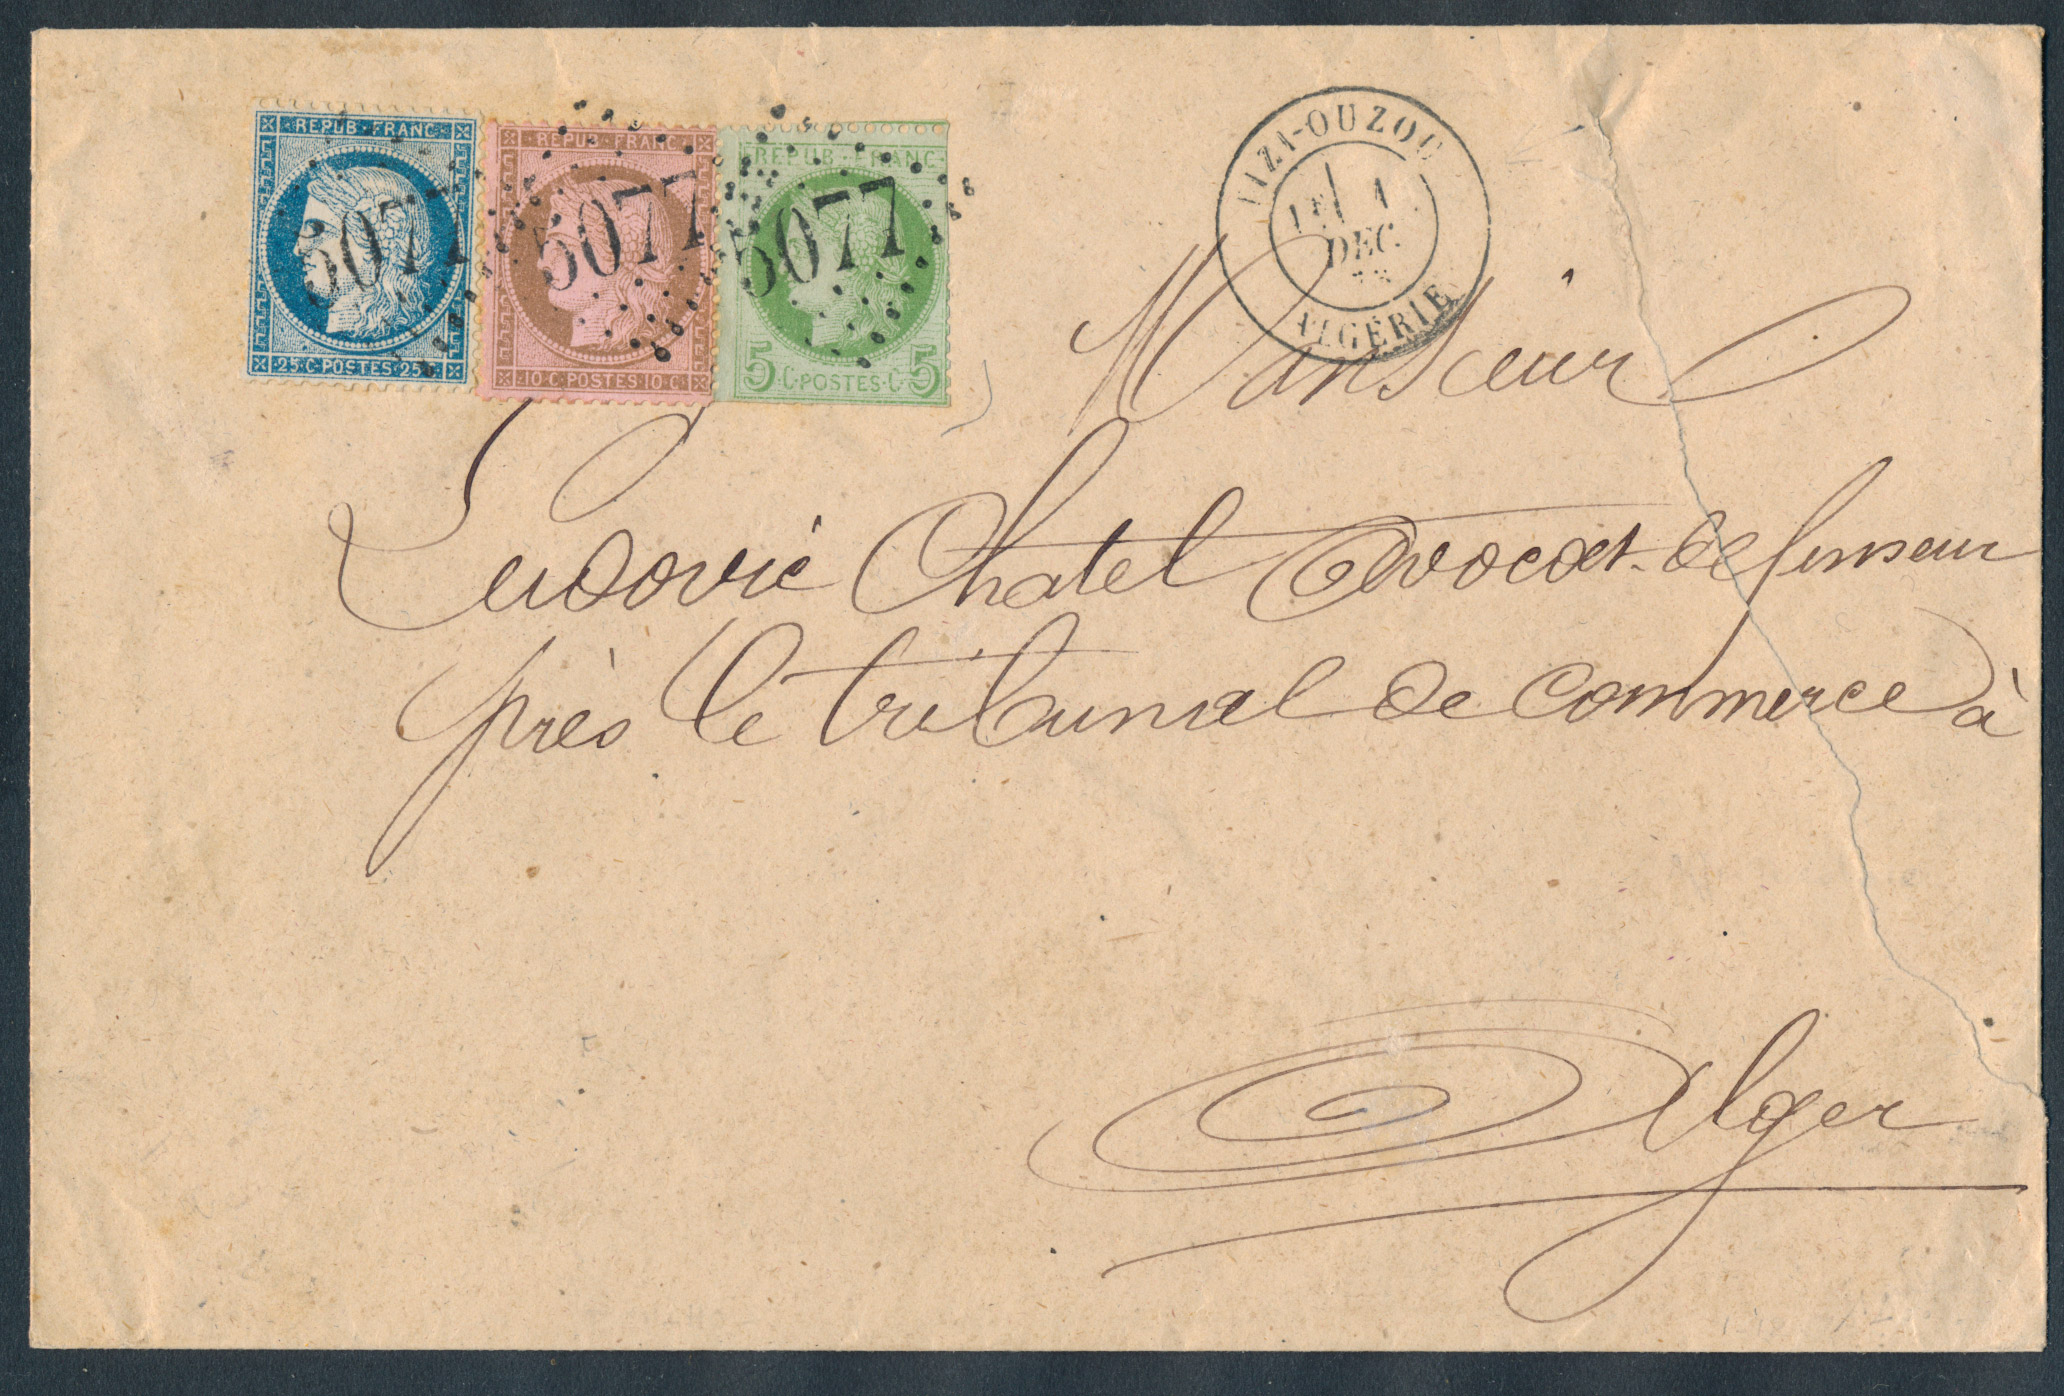 REPUB · FRANC ·
25 · C · POSTES · 25 · C ·
5077
REPUB · FRANC ·
10 · C · POSTES · 10 · C ·
5077
REPUB · FRANC ·
5 · C · POSTES · C · 5
5077
TIZI-OUZOU
1
DEC.
ALGÉRIE
Monsieur
Ludovic Chatel Avocat-défenseur
près le tribunal de commerce à
Alger